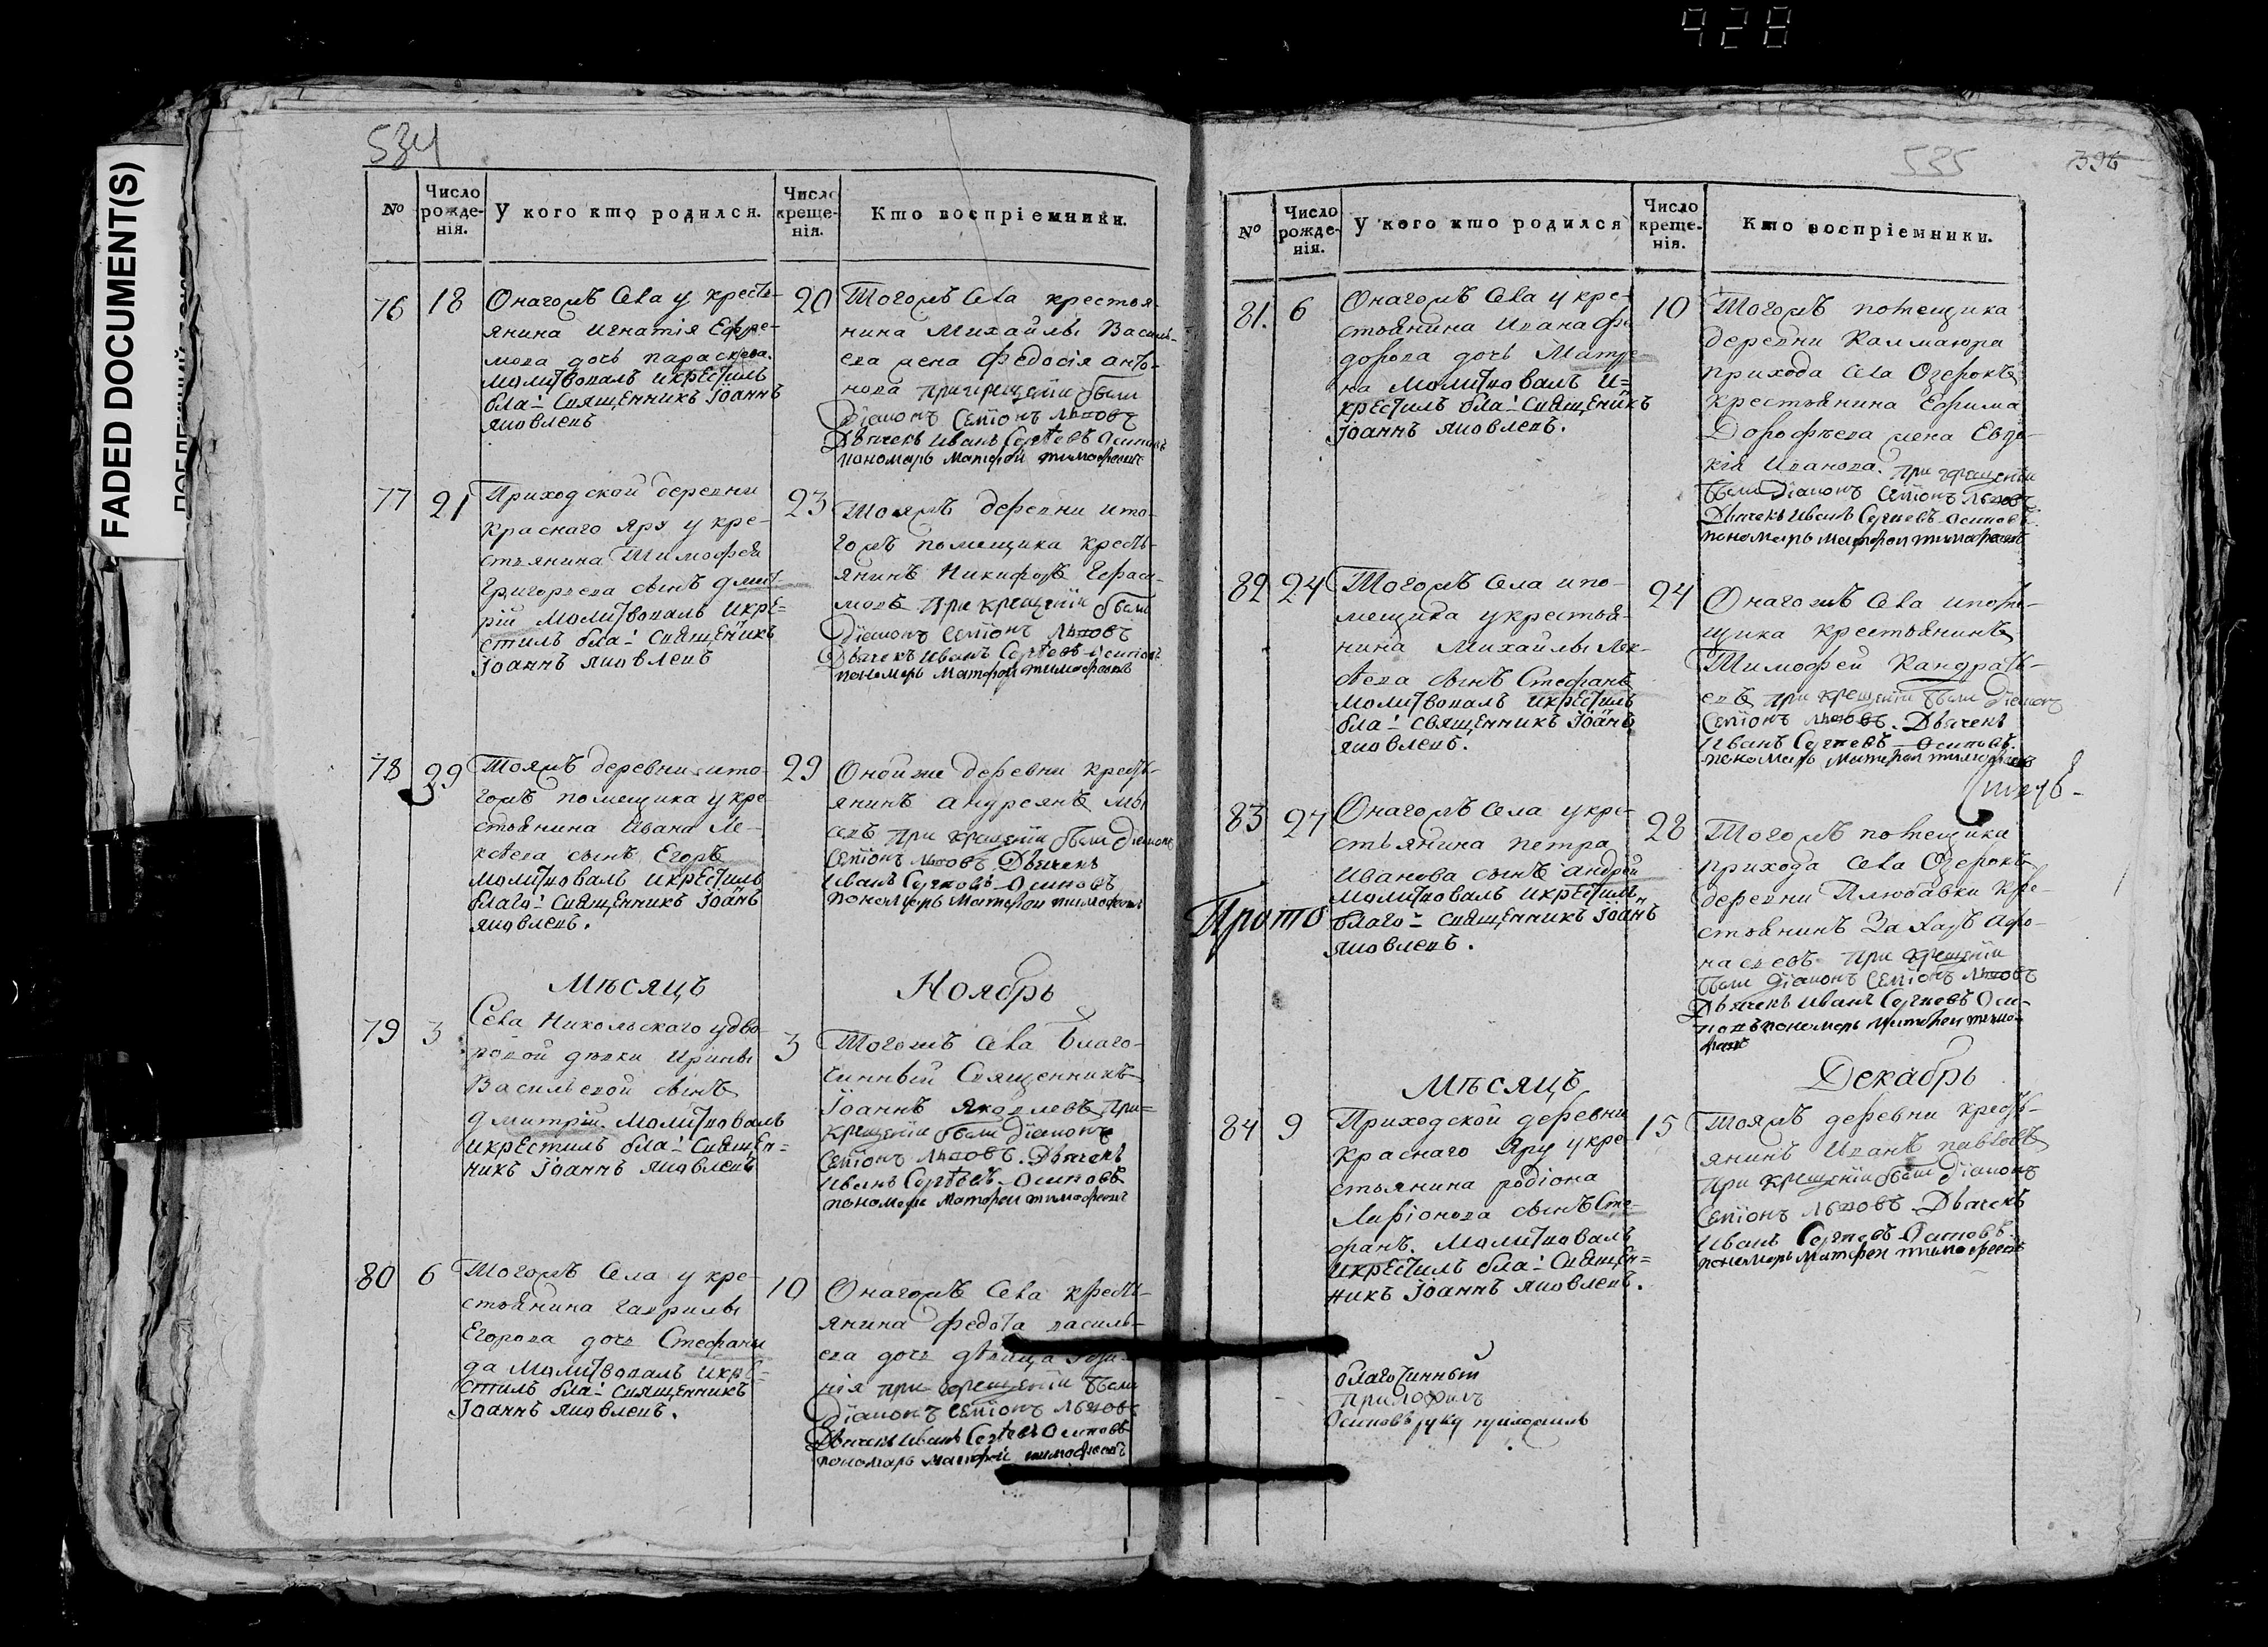 928
FADED DOCUMENT(S)
534
№
Число рожде-нія.
У кого кто родился.
Число креще-нія.
Кто воспріемники.
76
18
Онагожъ Села у кресть-
янина Игнатія Ефре-
мова дочь параскева.
молитвовалъ икрестилъ
бла: священникъ Іоаннъ
яковлевъ
20
Тогожъ Села крестья-
нина Михайлы Василь-
ева жена Федосія анто-
нова при крещеніи были
діаконъ Семіонъ Львовъ
Дьячекъ Иванъ Сергѣевъ Осиповъ
пономарь Матфей тимофеевъ
77
21
Приходской деревни
Краснаго Яру у кре-
стьянина Тимофея
Григорьева сынъ дмит-
рій молитвовалъ икре=
стилъ бла: священникъ
Іоаннъ яковлевъ
23
Тояжъ деревни ито-
гожъ помещика кресть-
янинъ Никифоръ Гераси-
мовъ при крещеніи были
діаконъ Семіонъ Львовъ
Дьячекъ Иванъ Сергѣевъ Осиповъ
пономарь Матфей тимофеевъ
78
29
Тояжъ деревни ито-
гожъ помещика у кре-
стьянина Ивана Ле-
ксѣева сынъ Егоръ
молитвовалъ икрестилъ
благо: священникъ Іоаннъ
яковлевъ.
29
Оной же деревни кресть-
янинъ андреянъ
при крещеніи были діаконъ
Семіонъ Львовъ Дьячекъ
Иванъ Сергѣевъ Осиповъ
пономарь Матфей тимофеевъ
Мѣсяцъ
Ноябрь
79
3
Села Никольскаго у дво-
ровой дѣвки Ирины
Васильевой сынъ
дмитрій. Молитвовалъ
икрестилъ бла: священ=
никъ Іоаннъ яковлевъ
3
Тогожъ Села Благо-
чинный Священникъ
Іоаннъ Яковлевъ при=
крещеніи были діаконъ
Семіонъ Львовъ. Дьячекъ
Иванъ Сергѣевъ Осиповъ
пономарь Матфей тимофеевъ
80
6
Тогожъ Села у кре-
стьянина гаврилы
Егорова дочь Стефани
да молитвовалъ икре=
стилъ бла: священникъ
Іоаннъ яковлевъ.
10
Онагожъ Села кресть-
янина федота василь-
ева дочь дѣвица
при крещеніи были
Діаконъ Семіонъ Львовъ
Дьячекъ Иванъ Сергѣевъ Осиповъ
пономарь Матфей тимофеевъ
535
396
№
Число рожде-нія.
У кого кто родился
Число креще-нія.
Кто воспріемники.
81.
6
Онагожъ Села у кре-
стьянина Ивана Фе
дорова дочь Матре-
на молитвовалъ и=
крестилъ бла: священникъ
Іоаннъ яковлевъ.
10
Тогожъ помещика
деревни Калмаюра
прихода Села Озерокъ
крестьянина Ефима
Дорофѣева жена Евдо-
кія Иванова. при крещеніи
были Діаконъ Семіонъ Львовъ
Дьячекъ Иванъ Сергѣевъ Осиповъ
пономарь Матфей тимофеевъ
82
24
Тогожъ Села ипо-
мещика у крестья-
нина Михайлы Лек-
сѣева сынъ Стефанъ
молитвовалъ икрестилъ
бла: священникъ Іоаннъ
яковлевъ.
24
Онагожъ Села ипоме-
щика крестьянинъ
Тимофей Кандрать-
евъ при крещеніи были Діаконъ
Семіонъ Львовъ. Дьячекъ
Иванъ Сергѣевъ Осиповъ.
пономарь Матфей тимофеевъ
83
27
Онагожъ Села у кре-
стьянина петра
Иванова сынъ андрей
молитвовалъ икрестилъ
благо: священникъ Іоаннъ
яковлевъ.
Прото
28
Тогожъ помещика
прихода Села Озерокъ
деревни Плюбавки кре-
стьянинъ Захаръ Афо-
насевъ при крещеніи
были Діаконъ Семіонъ Львовъ
Дьячекъ Иванъ Сергѣевъ Оси-
повъ пономарь Матфей тимо-
феевъ
Мѣсяцъ
Декабрь
84
9
Приходской деревни
Краснаго Яру у кре-
стьянина родіона
Ларіонова сынъ Сте-
фанъ. Молитвовалъ
икрестилъ бла: Священ=
никъ Іоаннъ яковлевъ.
15
Тояжъ деревни кресть-
янинъ Иванъ павловъ
при крещеніи были діаконъ
Семіонъ Львовъ Дьячекъ
Иванъ Сергѣевъ Осиповъ
пономарь Матфей тимофеевъ
благочинный
Осиповъ руку приложилъ